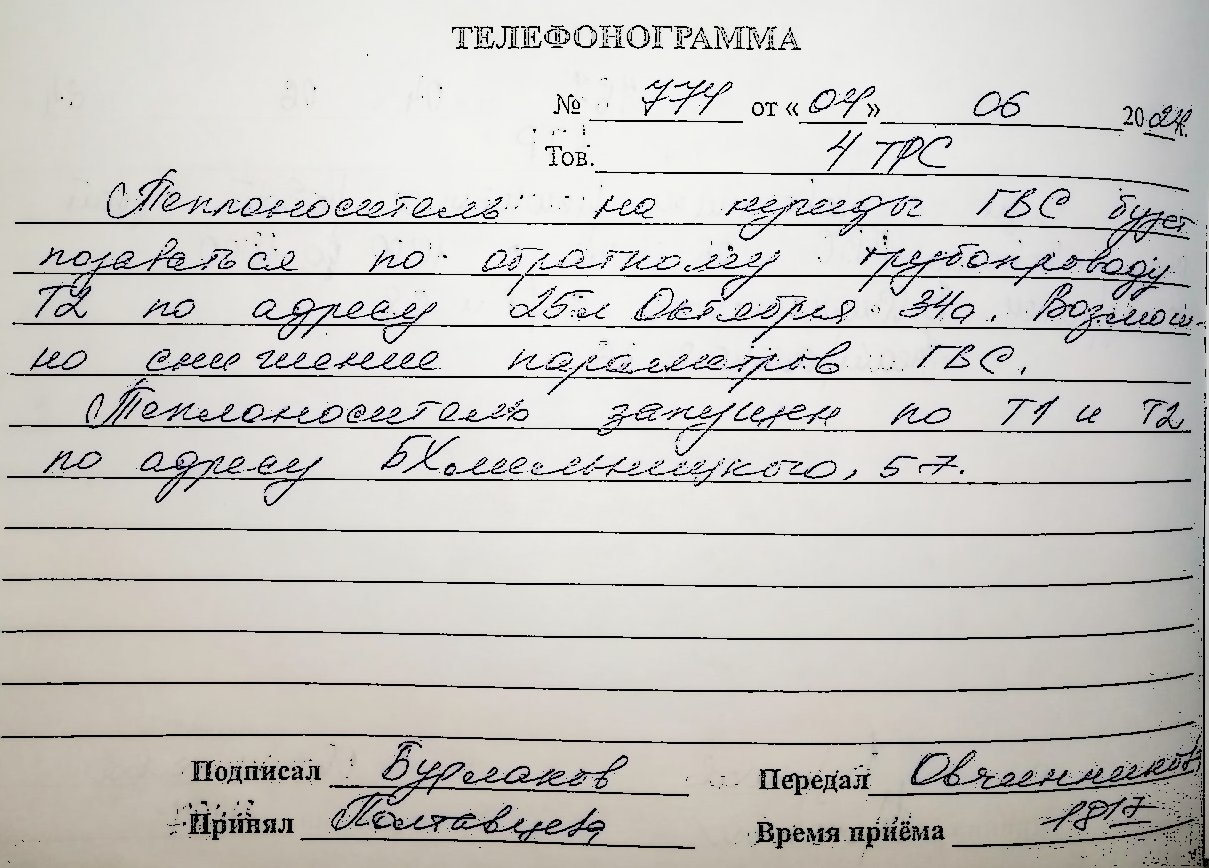 ТЕЛЕФОНОГРАММА
№ 774 от «04» 06 2024г.
Тов. 4 ТРС
Теплоноситель на нужды ГВС будет
подаваться по обратному трубопроводу
Т2 по адресу 25л Октября 34а. Возмож-
но снижение параметров ГВС.
Теплоноситель запущен по Т1 и Т2
по адресу БХмельницкого, 57.
Подписал Бурлаков Передал Овчинников
Принял Полтавцева Время приёма 1817